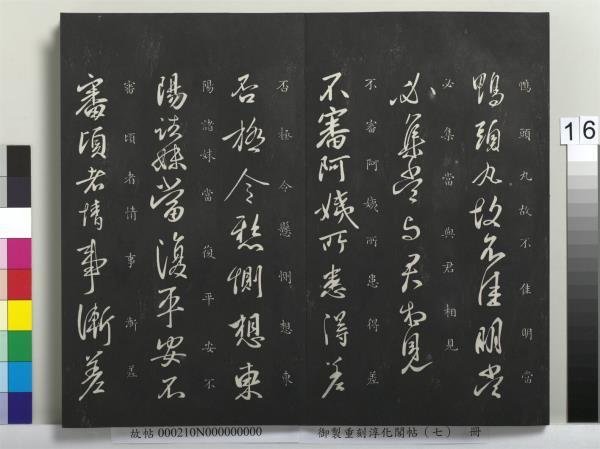 鴨頭丸故不佳明當
鴨頭丸故不佳明當
必集當與君相見
必集當与君相見
不審阿姨所患得差
不審阿姨所患得差
否極令懸惻想東
否極令懸惻想東
陽諸妹當復平安不
陽諸妹當復平安不
審頃者情事漸差
審頃者情事漸差
16
故帖 000210N000000000 御製重刻淳化閣帖（七） 冊